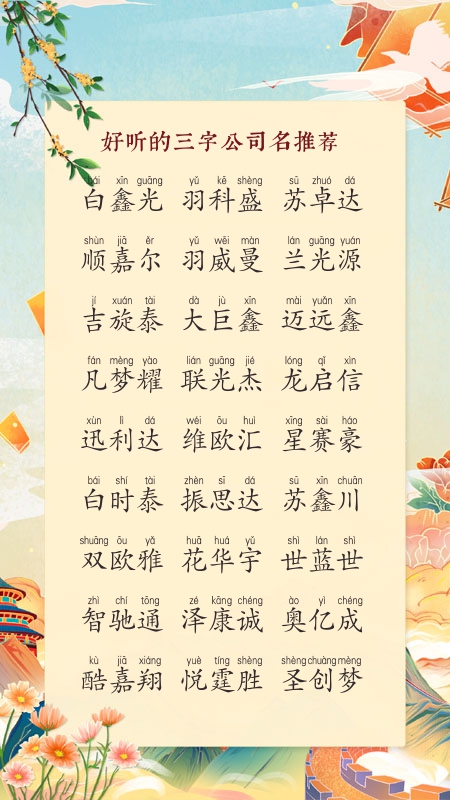 好听的三字公司名推荐
bái xīn guāng yǔ kē shèng sū zhuó dá
白鑫光 羽科盛 苏卓达
shùn jiā ěr yǔ wēi màn lán guāng yuán
顺嘉尔 羽威曼 兰光源
jí xuán tài dà jù xīn mài yuǎn xīn
吉旋泰 大巨鑫 迈远鑫
fán mèng yào lián guāng jié lóng qǐ xìn
凡梦耀 联光杰 龙启信
xùn lì dá wéi ōu huì xīng sài háo
迅利达 维欧汇 星赛豪
bái shí tài zhèn sī dá sū xīn chuān
白时泰 振思达 苏鑫川
shuāng ōu yǎ huā huá yǔ shì lán shì
双欧雅 花华宇 世蓝世
zhì chí tōng zé kāng chéng ào yì chéng
智驰通 泽康诚 奥亿成
kù jiā xiáng yuè tíng shèng shèng chuàng mèng
酷嘉翔 悦霆胜 圣创梦